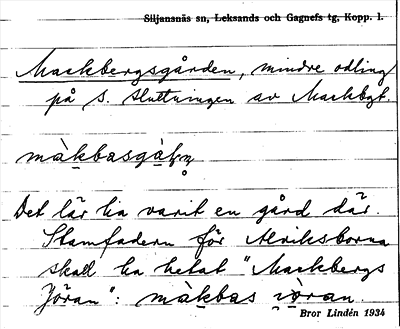 Siljansnäs sn, Leksands och Gagnefs tg, Kopp. l.
Mackbergsgården, mindre odling
på s. sluttningen av Mackbgt.
Det lär ha varit en gård där.
Stamfadern för Alriksborna
skall ha hetat "Mackbergs
Jöran": màkbas jòran.
Bror Lindén 1934